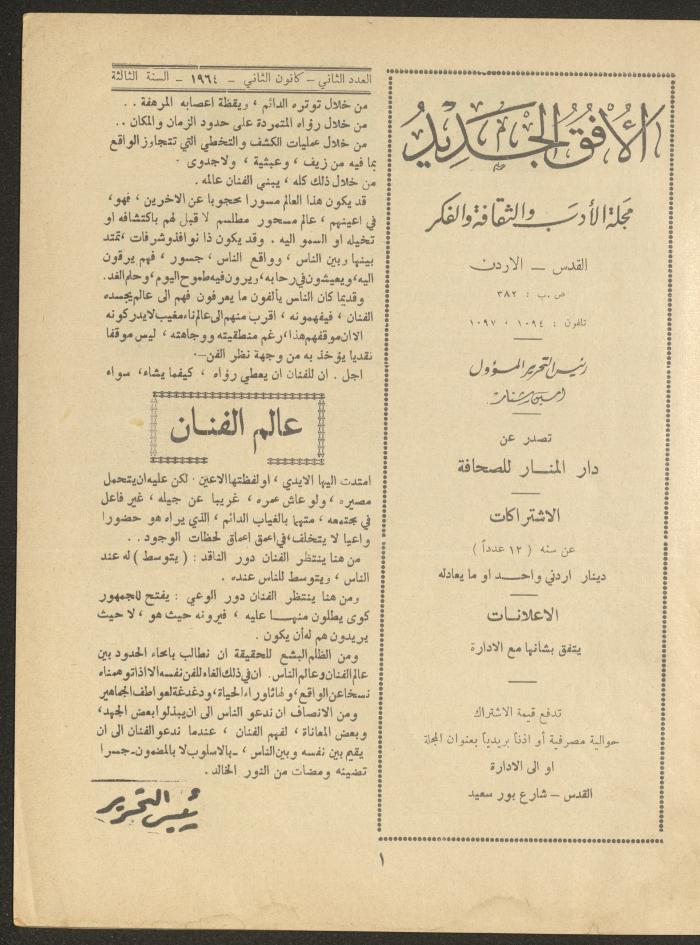 الأفق الجديد
مجلة الأدب والثقافة والفكر
القدس – الاردن
ص.ب : ٣٨٢
تلفون : ١٠٩٤ ، ١٠٩٧
رئيس التحرير المسؤول
امين شنار
تصدر عن
دار المنار للصحافة
الاشتراكات
عن سنه ( ١٢ عدداً )
دينار اردني واحد او ما يعادله
الاعلانات
يتفق بشانها مع الادارة
تدفع قيمة الاشتراك
حوالية مصرفية أو اذناً بريدياً بعنوان المجلة
او الى الادارة
القدس – شارع بور سعيد
العدد الثاني – كانون الثاني – ١٩٦٤ – السنة الثالثة
من خلال توتره الدائم ، ويقظة اعصابه المرهفة . .
من خلال رؤاه المتمردة على حدود الزمان والمكان . .
من خلال عمليات الكشف والتخطي التي تتجاوز الواقع
بما فيه من زيف ، وعبثية ، ولاجدوى .
من خلال ذلك كله ، يبني الفنان عالمه .
قد يكون هذا العالم مسورا محجوبا عن الاخرين ، فهو،
في اعينهم ، عالم مسحور مطلسم لا قبل لهم باكتشافه او
تخيله او السمو اليه . وقد يكون ذا نوافذ وشرفات ، تمتد
بينها وبين الناس ، وواقع الناس ، جسور ، فهم يرقون
اليه، ويعيشون في رحابه، ويرون فيه طموح اليوم، وحلم الغد.
وقديما كان الناس يألفون ما يعرفون فهم الى عالم يجسده
الفنان ، فيفهمونه ، اقرب منهم الى عالم ناء مغيب لا يدركونه
الا ان موقفهم هذا، رغم منطقيته ووجاهته ، ليس موقفا
نقديا يؤخذ به من وجهة نظر الفن –.
اجل . ان للفنان ان يعطي رؤاه ، كيفما يشاء، سواه
عالم الفنان
امتدت اليها الايدي ، او لفظتها الاعين . لكن عليه ان يتحمل
مصيره ، ولو عاش عمره ، غريبا عن جيله ، غير فاعل
في مجتمعه ، متهما بالغياب الدائم ، الذي يراه هو حضورا
واعيا لا يتخلف، في اعمق اعماق لحظات الوجود . .
من هنا ينتظر الفنان دور الناقد : ( يتوسط ) له عند
الناس ، ويتوسط للناس عنده .
ومن هنا ينتظر الفنان دور الوعي : يفتح للجمهور
كوى يطلون منها عليه ، فيرونه حيث هو ، لا حيث
يريدون هم له أن يكون .
ومن الظلم البشع للحقيقة ان نطالب بامحاء الحدود بين
عالم الفنان وعالم الناس. ان في ذلك الغاء للفن نفسه الا اذا توهمناه
نسخا عن الواقع، ولهاثا وراء الحياة، ودغدغة لعواطف الجماهير
ومن الانصاف ان ندعو الناس الى ان يبذلوا بعض الجهد،
وبعض المعاناة ، لفهم الفنان ، عندما ندعو الفنان الى ان
يقيم بين نفسه وبين الناس ، ـ بالاسلوب لا بالمضمون ـ جسرا
تضيئه ومضات من النور الخالد .
رئيس التحرير
١